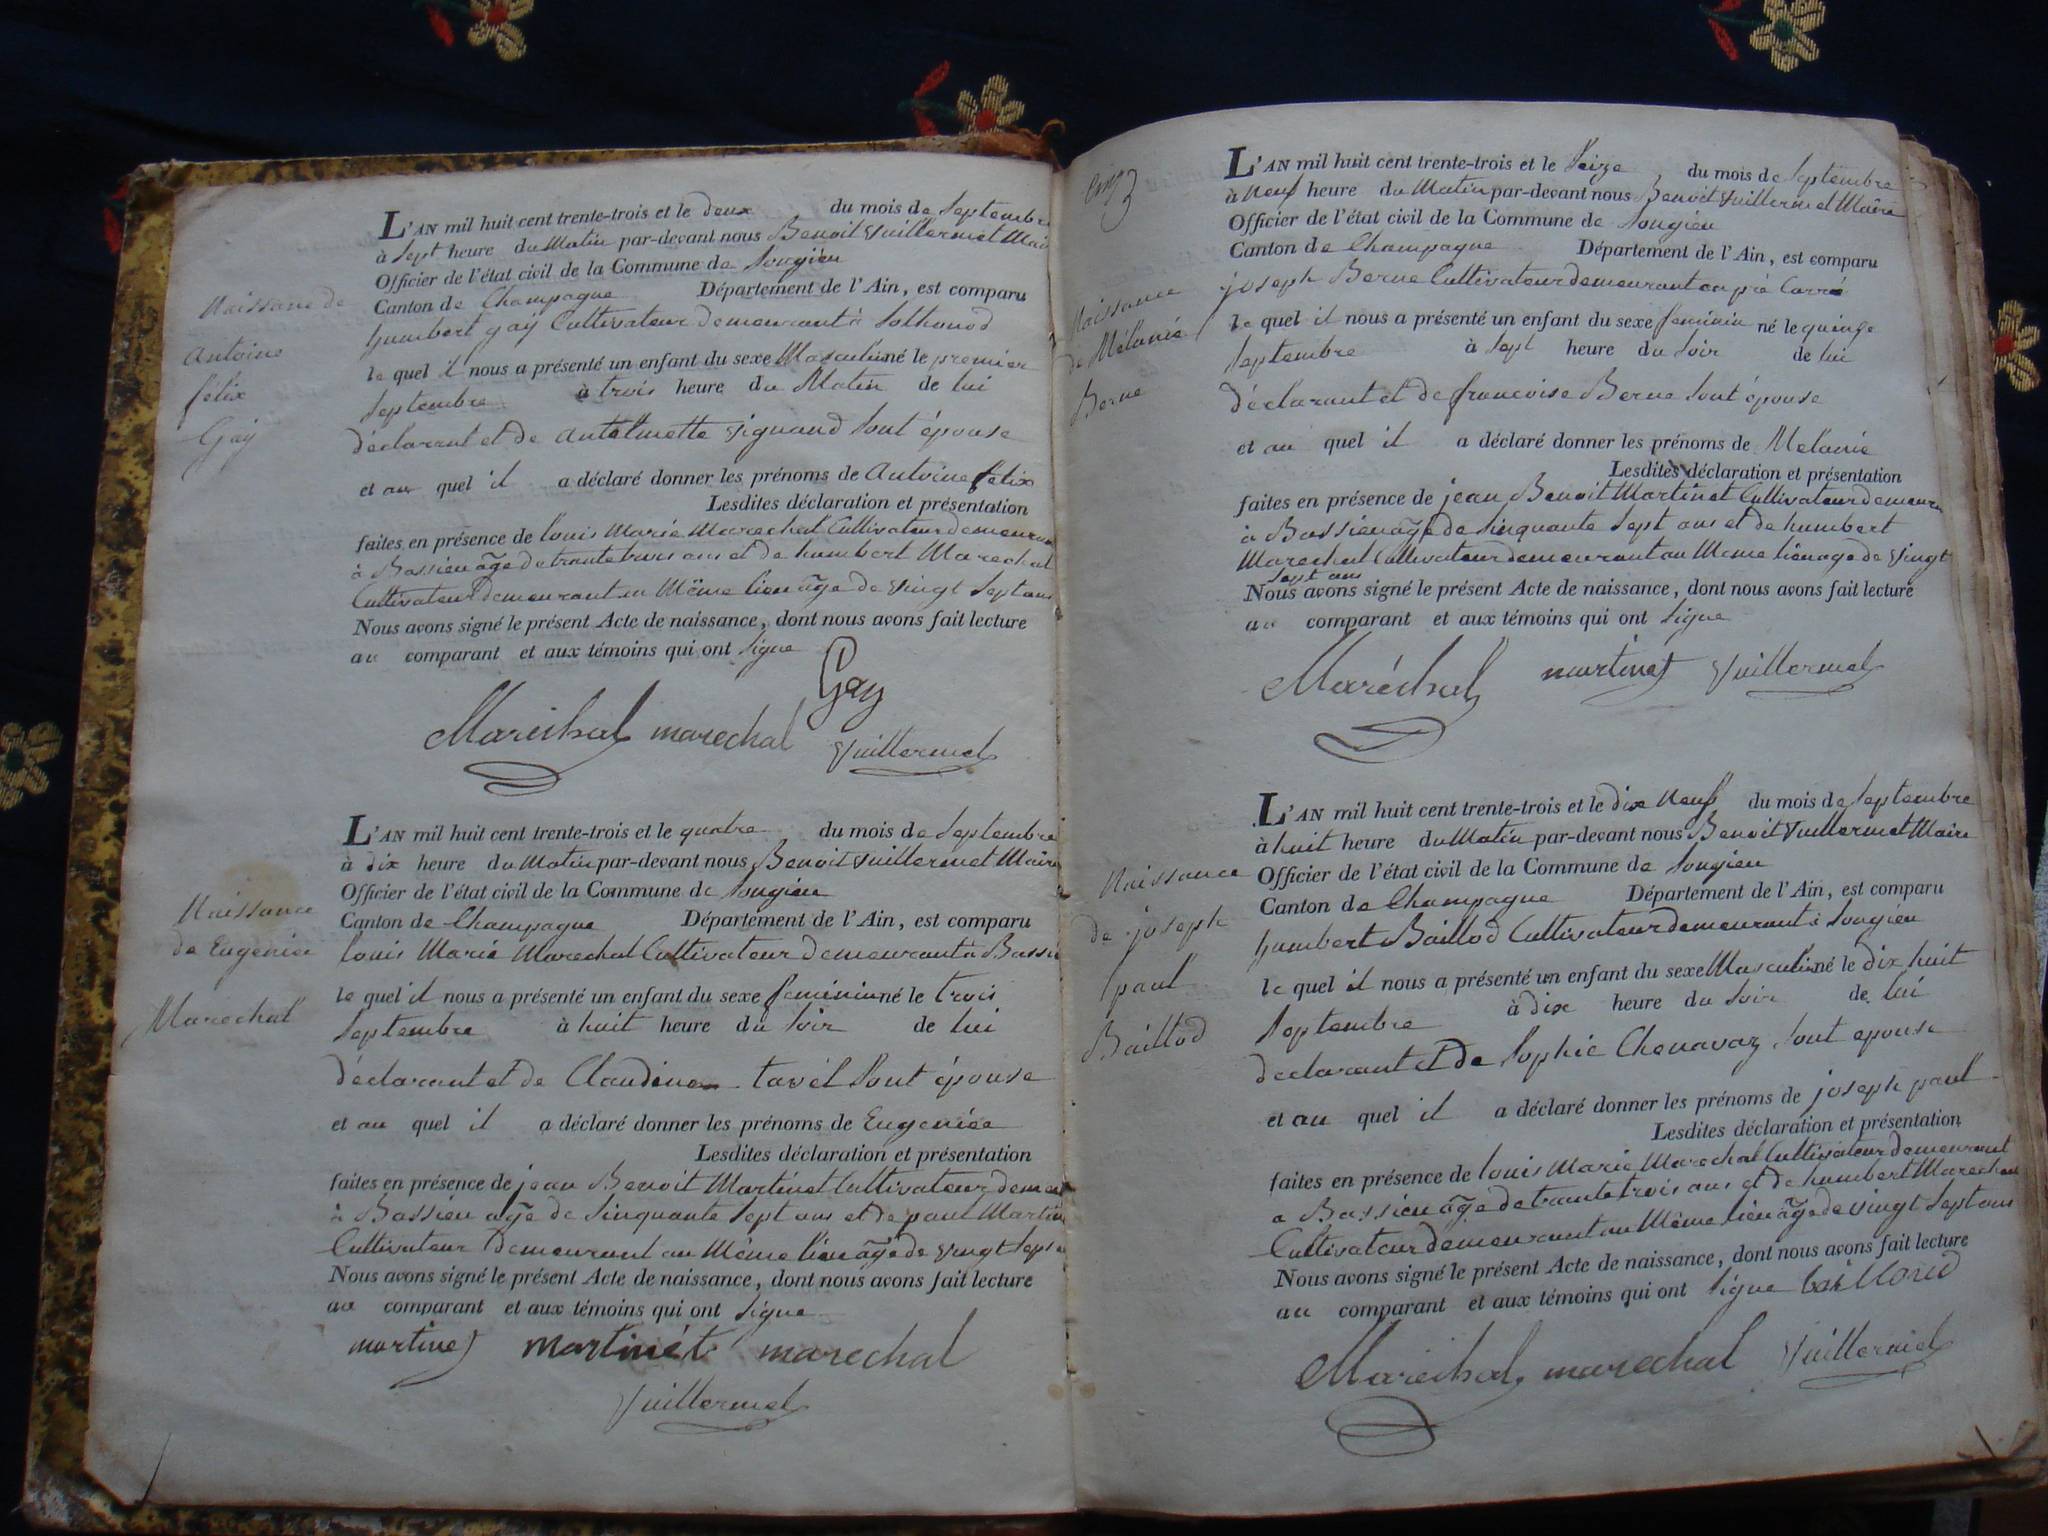 Naissance de
Antoine
félix
Gaÿ
L'AN mil huit cent trente-trois et le deux du mois de Septembre
à Sept heure du Matin par-devant nous Benoit Vuillermet Mai
Officier de l'état civil de la Commune de Songieu
Canton de Champagne Département de l'Ain, est comparu
humbert gaÿ Cultivateur demeurant à Sothonod
le quel il nous a présenté un enfant du sexe Masculin né le premier
Septembre à trois heure du Matin de lui
déclarant et de antelmette Vignand Sont épouse
et au quel il a déclaré donner les prénoms de Antoine félix
Lesdites déclaration et présentation
faites en présence de louis Marie Marechal Cultivateur demeuran
à Bassieu âgé de trante trois ans et de humbert Marechal
Cultivateur demeurant au Même lieu âgé de Vingt Sept ans
Nous avons signé le présent Acte de naissance, dont nous avons fait lecture
au comparant et aux témoins qui ont Signe
Gay
Maréchal marechal Vuillermet
Naissance
de Eugenie
Marechal
L'AN mil huit cent trente-trois et le quatre du mois de Septembre
à dix heure du Matin par-devant nous Benoit Vuillermet Maire
Officier de l'état civil de la Commune de Songieu
Canton de Champagne Département de l'Ain, est comparu
louis Marie Marechal Cultivateur demeurant à Bassie
le quel il nous a présenté un enfant du sexe feminin né le trois
Septembre à huit heure du Soir de lui
déclarant et de Claudine tavel Sont épouse
et au quel il a déclaré donner les prénoms de Eugenie
Lesdites déclaration et présentation
faites en présence de jean Benoit Martinet Cultivateur demeu
à Bassieu age de Sinquante Sept ans et de paul Martin
Cultivateur demeurant au Même lieu âgé de Vingt Sept a
Nous avons signé le présent Acte de naissance, dont nous avons fait lecture
au comparant et aux témoins qui ont Signe
martinet martinét marechal
Vuillermet
Naissance
de Mélanie
Berne
L'AN mil huit cent trente-trois et le Seize du mois de Septembre
à Neuf heure du Matin par-devant nous Benoit Vuillermet Maire
Officier de l'état civil de la Commune de Songieu
Canton de Champagne Département de l'Ain, est comparu
joseph Berne Cultivateur demeurant au pré Carré
le quel il nous a présenté un enfant du sexe feminin né le quinze
Septembre à Sept heure du Soir de lui
déclarant et de francoise Berne Sont épouse
et au quel il a déclaré donner les prénoms de Melanie
Lesdites déclaration et présentation
faites en présence de jean Benoit Martinet Cultivateur demeura
à Bassieu âgé de Sinquante Sept ans et de humbert
Marechal Cultivateur demeurant au Même lieu age de Vingt
Sept ans
Nous avons signé le présent Acte de naissance, dont nous avons fait lecture
au comparant et aux témoins qui ont Signe
Maréchal martinet Vuillermet
Naissance
de joseph
paul
Baillod
L'AN mil huit cent trente-trois et le dix Neuf du mois de Septembre
à huit heure du Matin par-devant nous Benoit Vuillermet Maire
Officier de l'état civil de la Commune de Songieu
Canton de Champagne Département de l'Ain, est comparu
humbert Baillod Cultivateur demeurant à Songieu
le quel il nous a présenté un enfant du sexe Masculin né le dix huit
Septembre à dix heure du Soir de lui
declarant et de Sophie Chenavaz Sont epouse
et au quel il a déclaré donner les prénoms de joseph paul
Lesdites déclaration et présentation
faites en présence de louis Marie Marechal Cultivateur demeurant
a Bassieu âgé de trante trois ans et de humbert Marechal
Cultivateur demeurant au Même lieu âgé de Vingt Sept ans
Nous avons signé le présent Acte de naissance, dont nous avons fait lecture
au comparant et aux témoins qui ont Signe bailloud
Maréchal marechal Vuillermet